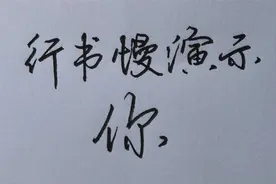 行书慢演示
你